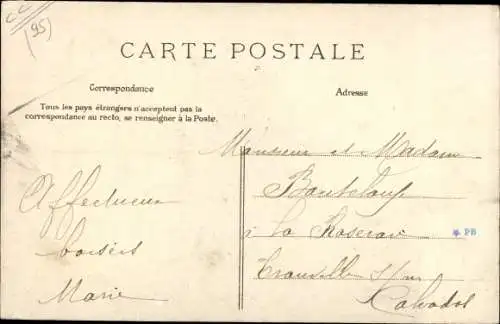 (95)
CARTE POSTALE
Correspondance
Tous les pays étrangers n'acceptent pas la
correspondance au recto, se renseigner à la Poste.
Adresse
Monsieur et Madame
à la Roseraie
PB
Trouville s/mer
Calvados
Affectueux
baisers
Marie